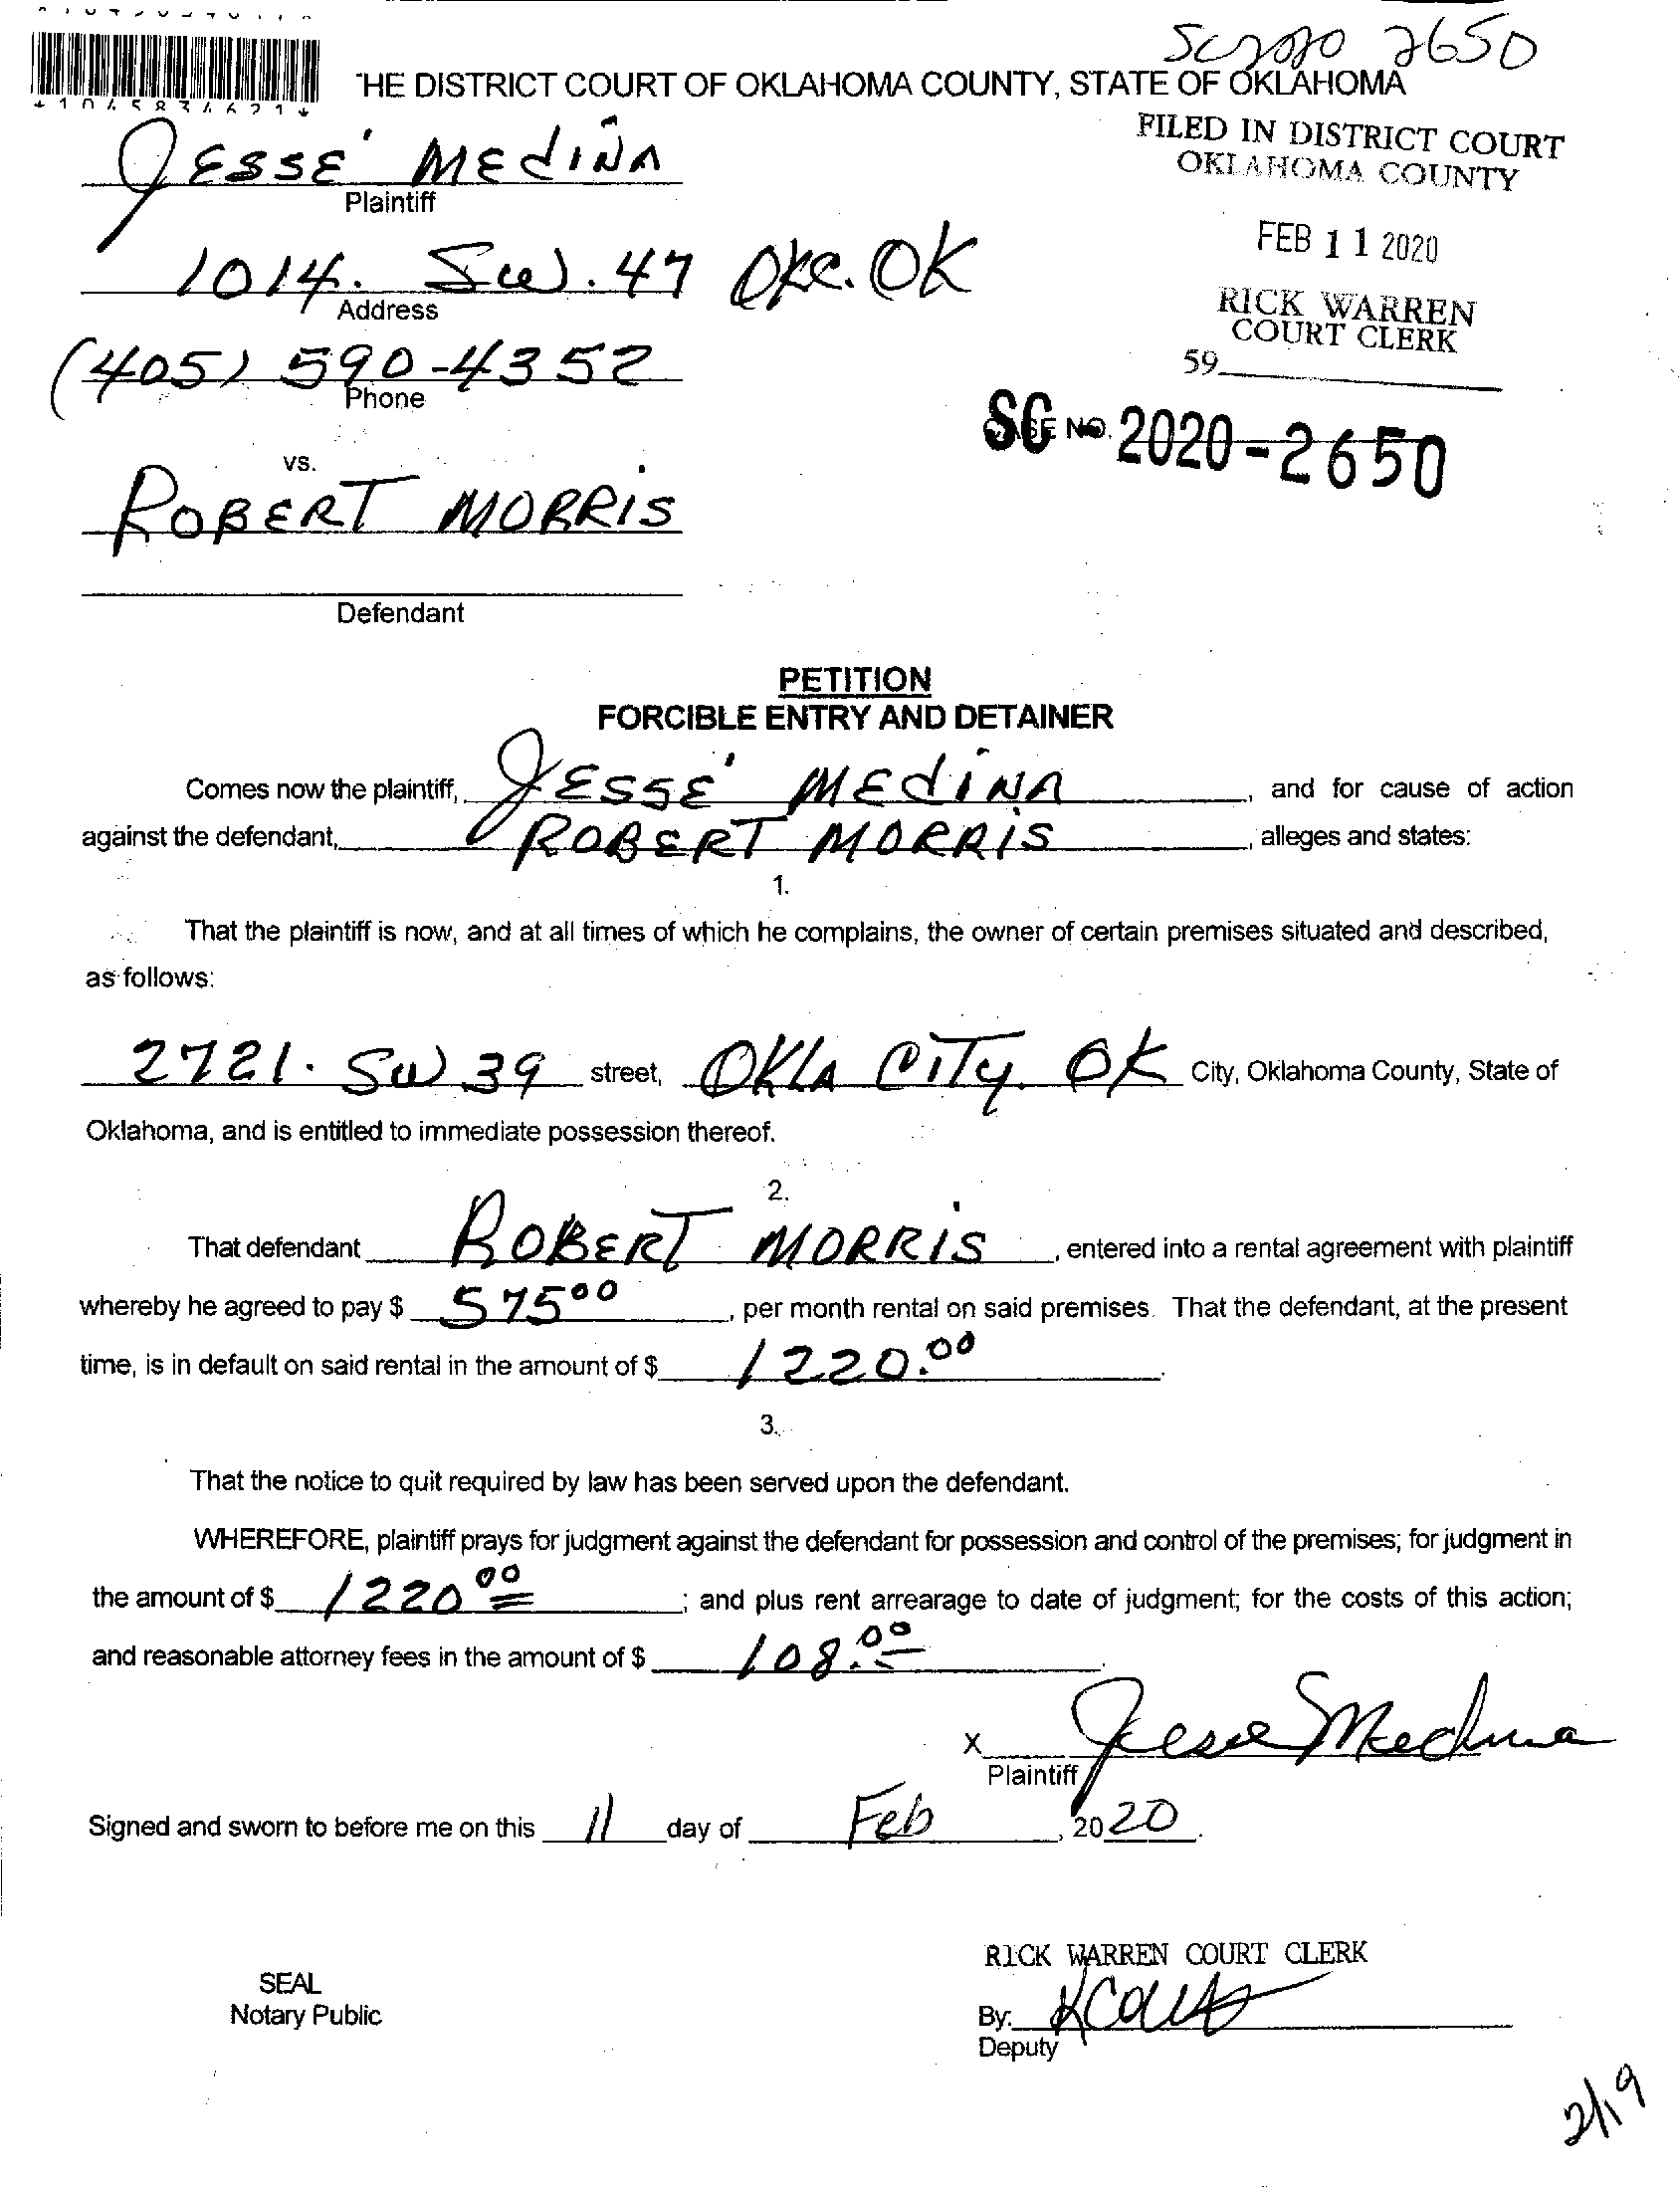 SC2020 2650
THE DISTRICT COURT OF OKLAHOMA COUNTY, STATE OF OKLAHOMA
*1045834621*
FILED IN DISTRICT COURT
OKLAHOMA COUNTY
JESSE' MEdiNA
Plaintiff
FEB 11 2020
1014. SW. 47 OKC. OK
Address
RICK WARREN
COURT CLERK
(405) 590-4352
Phone
59
SC CASE NO. 2020-2650
vs.
ROBERT MORRIS
Defendant
PETITION
FORCIBLE ENTRY AND DETAINER
Comes now the plaintiff, JESSE' MEdiNA, and for cause of action
against the defendant, ROBERT MORRIS, alleges and states:
1.
That the plaintiff is now, and at all times of which he complains, the owner of certain premises situated and described,
as follows:
2721. SW 39 street, OKLA CiTy. OK City, Oklahoma County, State of
Oklahoma, and is entitled to immediate possession thereof.
2.
That defendant ROBERT MORRIS, entered into a rental agreement with plaintiff
whereby he agreed to pay $ 575 00, per month rental on said premises. That the defendant, at the present
time, is in default on said rental in the amount of $ 1220.00.
3.
That the notice to quit required by law has been served upon the defendant.
WHEREFORE, plaintiff prays for judgment against the defendant for possession and control of the premises; for judgment in
the amount of $ 1220 00; and plus rent arrearage to date of judgment; for the costs of this action;
and reasonable attorney fees in the amount of $ 108.00.
X Jesse Medina
Plaintiff
Signed and sworn to before me on this 11 day of Feb, 2020.
RICK WARREN COURT CLERK
SEAL
Notary Public
By:
Deputy
2/19